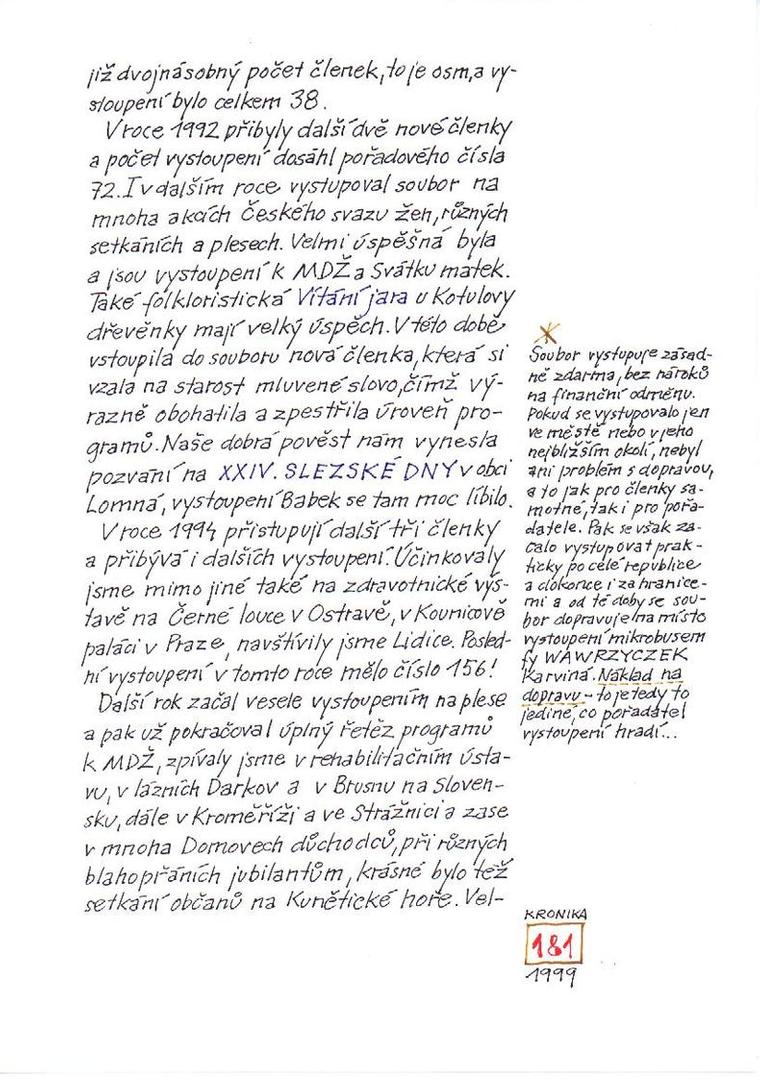 již dvojnásobný počet členek, to je osm, a vy-
stoupení bylo celkem 38.
V roce 1992 přibyly další dvě nové členky
a počet vystoupení dosáhl pořadového čísla
72. I v dalším roce vystupoval soubor na
mnoha akcích Českého svazu žen, různých
setkáních a plesech. Velmi úspěšná byla
a jsou vystoupení k MDŽ a Svátku matek.
Také folkloristická Vítání jara u Kotulovy
dřevěnky mají velký úspěch. V této době
vstoupila do souboru nová členka, která si
vzala na starost mluvené slovo, čímž vý-
razně obohatila a zpestřila úroveň pro-
gramů. Naše dobrá pověst nám vynesla
pozvání na XXIV. SLEZSKÉ DNY v obci
Lomná, vystoupení Babek se tam moc líbilo.
V roce 1994 přistupují další tři členky
a přibývá i dalších vystoupení. Účinkovaly
jsme mimo jiné také na zdravotnické výs-
tavě na Černé louce v Ostravě, v Kounicově
paláci v Praze, navštívily jsme Lidice. Posled-
ní vystoupení v tomto roce mělo číslo 156!
Další rok začal vesele vystoupením na plese
a pak už pokračoval úplný řetěz programů
k MDŽ, zpívaly jsme v rehabilitačním ústa-
vu, v lázních Darkov a v Brusnu na Sloven-
sku, dále v Kroměříži a ve Strážnici a zase
v mnoha Domovech důchodců, při různých
blahopřáních jubilantům, krásné bylo též
setkání občanů na Kunětické hoře. Vel-
Soubor vystupuje zásad-
ně zdarma, bez nároků
na finanční odměnu.
Pokud se vystupovalo jen
ve městě nebo v jeho
nejbližším okolí, nebyl
ani problém s dopravou,
a to jak pro členky sa-
motné, tak i pro pořa-
datele. Pak se však za-
čalo vystupovat prak-
ticky po celé republice
a dokonce i za hranice-
mi a od té doby se sou-
bor dopravuje na místo
vystoupení mikrobusem
fy WAWRZYCZEK
Karviná. Náklad na
dopravu - to je tedy to
jediné, co pořadatel
vystoupení hradí...
KRONIKA
181
1999